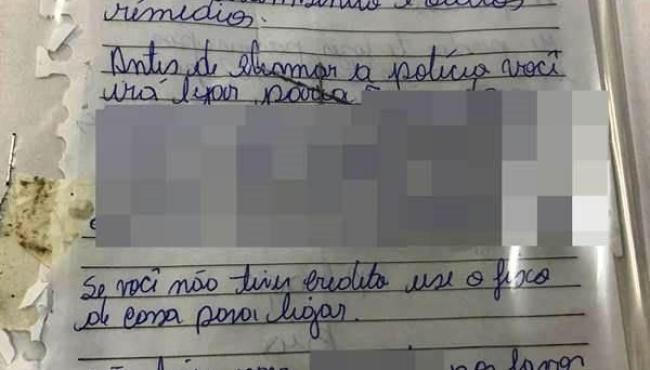 remédios.
Antes de chamar a polícia você
irá ligar para
Se você não tiver credito use o fixo
de casa para ligar.
por favor